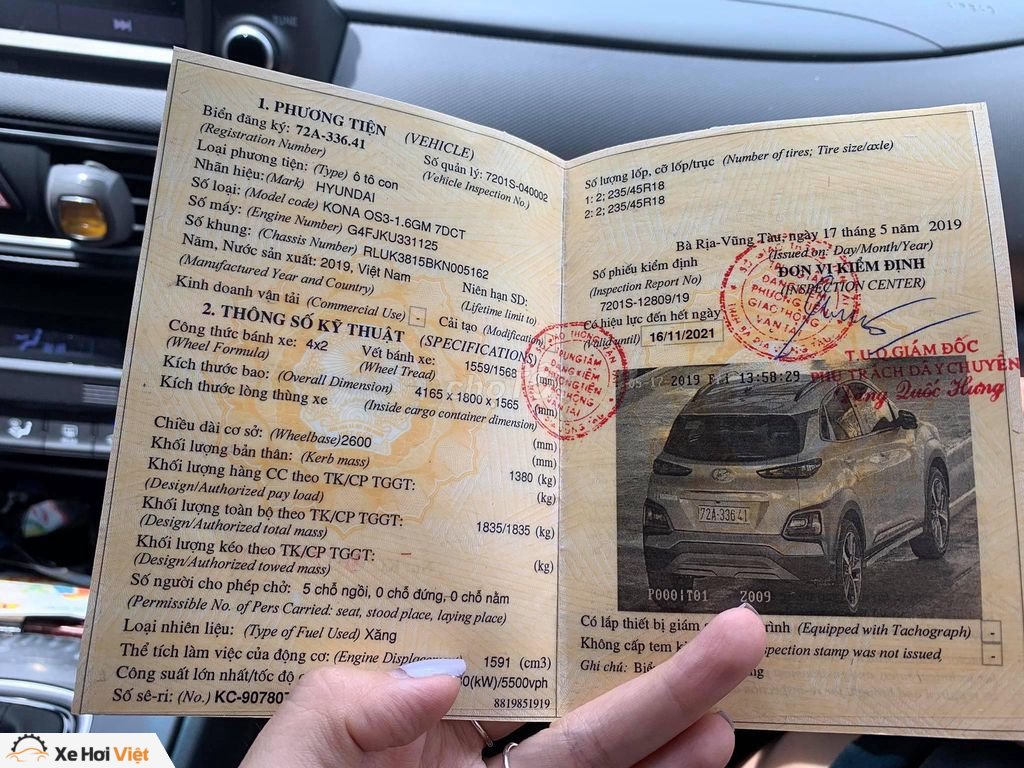 TUNE
1. PHƯƠNG TIỆN (VEHICLE)
Biển đăng ký: 72A-336.41 Số quản lý: 7201S-040002
(Registration Number) (Vehicle Inspection No.)
Loại phương tiện: (Type) ô tô con
Nhãn hiệu: (Mark) HYUNDAI
Số loại: (Model code) KONA OS3-1.6GM 7DCT
Số máy: (Engine Number) G4FJKU331125
Số khung: (Chassis Number) RLUK3815BKN005162
Năm, Nước sản xuất: 2019, Việt Nam Niên hạn SD:
(Manufactured Year and Country) (Lifetime limit to)
Kinh doanh vận tải (Commercial Use) - Cải tạo (Modification)
2. THÔNG SỐ KỸ THUẬT (SPECIFICATIONS)
Công thức bánh xe: 4x2 Vết bánh xe: 1559/1568 (mm)
(Wheel Formula) (Wheel Tread)
Kích thước bao: (Overall Dimension) 4165 x 1800 x 1565 (mm)
Kích thước lòng thùng xe (Inside cargo container dimension)
(mm)
Chiều dài cơ sở: (Wheelbase)2600 (mm)
Khối lượng bản thân: (Kerb mass) 1380 (kg)
Khối lượng hàng CC theo TK/CP TGGT: (kg)
(Design/Authorized pay load)
Khối lượng toàn bộ theo TK/CP TGGT: 1835/1835 (kg)
(Design/Authorized total mass)
Khối lượng kéo theo TK/CP TGGT: (kg)
(Design/Authorized towed mass)
Số người cho phép chở: 5 chỗ ngồi, 0 chỗ đứng, 0 chỗ nằm
(Permissible No. of Pers Carried: seat, stood place, laying place)
Loại nhiên liệu: (Type of Fuel Used) Xăng
Thể tích làm việc của động cơ: (Engine 1591 (cm3)
Công suất lớn nhất/tốc độ (kW)/5500vph
Số sê-ri: (No.) KC-90780 8819851919
Số lượng lốp, cỡ lốp/trục (Number of tires; Tire size/axle)
1: 2; 235/45R18
2: 2; 235/45R18
Bà Rịa-Vũng Tàu, ngày 17 tháng 5 năm 2019
(Issued on: Day/Month/Year)
Số phiếu kiểm định ĐƠN VỊ KIỂM ĐỊNH
(Inspection Report No) (INSPECTION CENTER)
7201S-12809/19
Có hiệu lực đến hết ngày
(Valid until) 16/11/2021
TRUNG TÂM
ĐĂNG KIỂM
PHƯƠNG TIỆN
GIAO THÔNG
VẬN TẢI
T.U.Q GIÁM ĐỐC
PHỤ TRÁCH DÂY CHUYỀN
Quốc Hưng
2019 13:58:29
72A-336 41
P000|T01 Z009
Có lắp thiết bị giám trình (Equipped with Tachograph) -
Không cấp tem spection stamp was not issued, -
Ghi chú:
Xe Hơi Việt